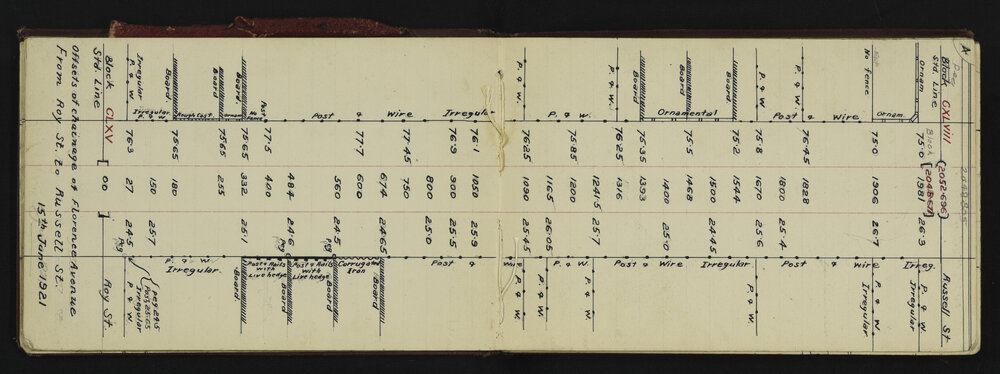 A
Peg
Block CXLVIII (2052.696) Russell St
Std. Line Block
Ornam. 75.0 1981 26.3 P. & W. Irreg. Irregular
Ornam.
No fence 75.0 1906 26.7 P. & W. Irregular
Wire Wire
P. & W. 76.45 1828
Post & 1800 25.4 Post &
P. & W. 75.8 1670 25.6 P. & W.
Board. 75.2 1544 Irregular
1500 24.45
Board 75.5 1468 Wire
Ornamental 1400 25.0
Board 75.35 1393 Post &
P. & W. 76.25 1316
1241.5 25.7 P. & W.
P. & W. 75.85 1200 P. & W.
1165 26.05 P. & W.
P. & W. 76.25 1090 25.45 P. & W.
Wire
Irregular 76.1 1050 25.9
76.9 900 25.5 Post &
800 25.0
Wire 77.45 750
674 24.65 Board
Post & 77.7 600 Corrugated Iron
560 24.5 Peg Board
Post & Rails with Live hedge
484 24.6 Peg Board
Post 77.5 400 Post & Rails with Live hedge
No Fence
Board. 76.65 332 25.1 Board.
Ornam.
Board 75.65 255
Rough Cast
Board 75.65 180 Irregular.
Irregular P. & W. 150 25.7 P. & W.
Irregular P. & W. 76.3 27 24.5 Peg { peg 24.5 Post 25.05 Irregular P. & W.
Block CLXV [ 0.0 ] Roy St.
Std. Line
Offsets of chainage of Florence Avenue
From Roy St. to Russell St.
15th June 1921